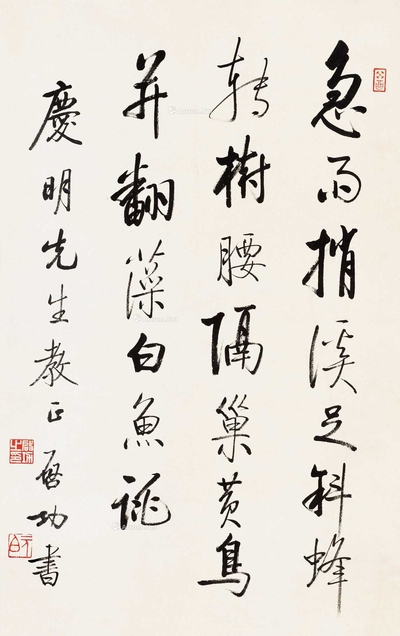 急雨捎溪足斜暉
轉樹腰隔巢黃鳥
并翻藻白魚跳
慶明先生教正 啓功書